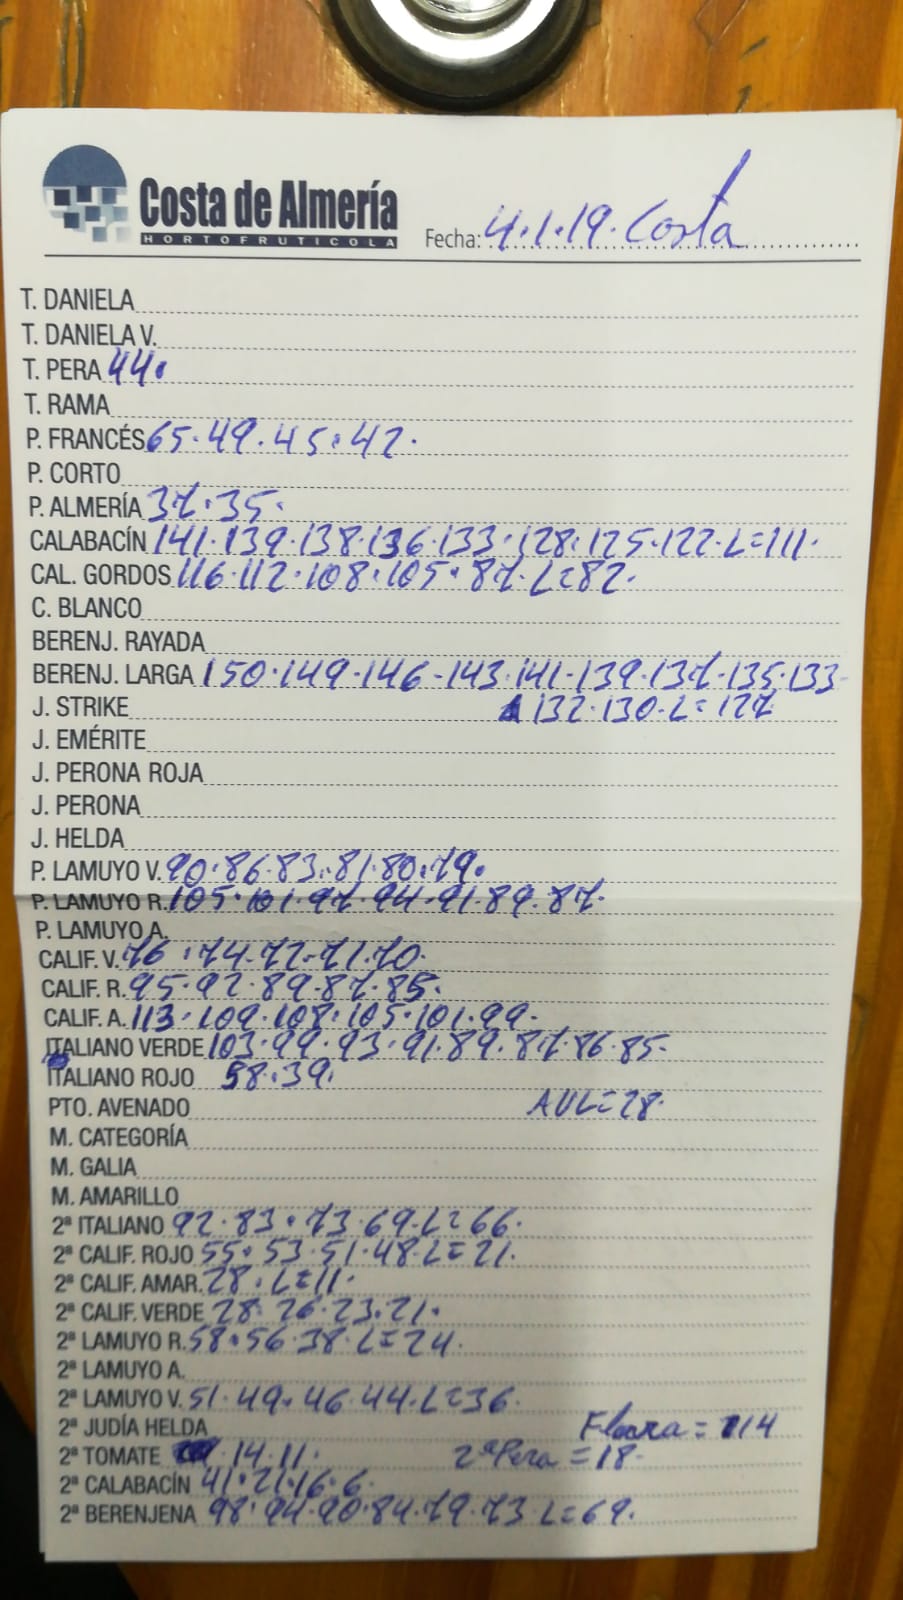 Costa de Almería
HORTOFRUTICOLA
Fecha: 4.1.19. Costa
T. DANIELA
T. DANIELA V.
T. PERA 44.
T. RAMA
P. FRANCÉS 65.49.45.42.
P. CORTO
P. ALMERÍA 37.35.
CALABACÍN 141.139.138.136.133.128.125.122.L=111.
CAL. GORDOS 116.112.108.105.87.L=82.
C. BLANCO
BERENJ. RAYADA
BERENJ. LARGA 150.149.146-143.141-139.137.135.133-
J. STRIKE 132.130.L=127
J. EMÉRITE
J. PERONA ROJA
J. PERONA
J. HELDA
P. LAMUYO V. 90.86.83.81.80.79.
P. LAMUYO R. 105.101.97.94.91.89.87.
P. LAMUYO A.
CALIF. V. 76.74.72-71.70.
CALIF. R. 95.92.89.87.85.
CALIF. A. 113.109.108.105.101.99.
ITALIANO VERDE 103.99.93.91.89.87.86.85-
ITALIANO ROJO 58.39.
PTO. AVENADO AUL=28.
M. CATEGORÍA
M. GALIA
M. AMARILLO
2ª ITALIANO 92.83.73.69.L=66.
2ª CALIF. ROJO 55.53.51.48.L=21.
2ª CALIF. AMAR. 28.L=11.
2ª CALIF. VERDE 28.26.23.21.
2ª LAMUYO R. 58.56.38.L=24.
2ª LAMUYO A.
2ª LAMUYO V. 51.49.46.44.L=36.
2ª JUDÍA HELDA = 14
2ª TOMATE 14.11. 2ª Pera = 18.
2ª CALABACÍN 41.21.16.6.
2ª BERENJENA 98.94.90.84.79.73.L=69.